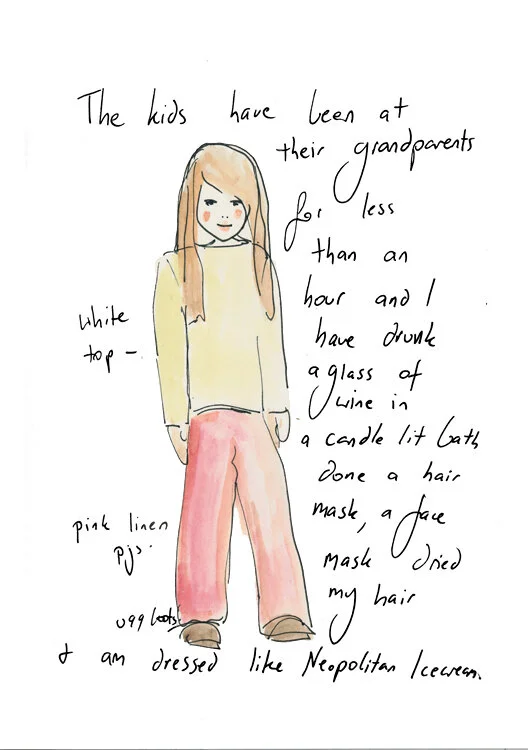 The kids have been at
their grandparents
for less
than an
hour and I
have drunk
a glass of
wine in
a candle lit bath
done a hair
mask, a face
mask dried
my hair
& am dressed like Neopolitan Icecream.
white
top -
pink linen
pjs.
ugg boots